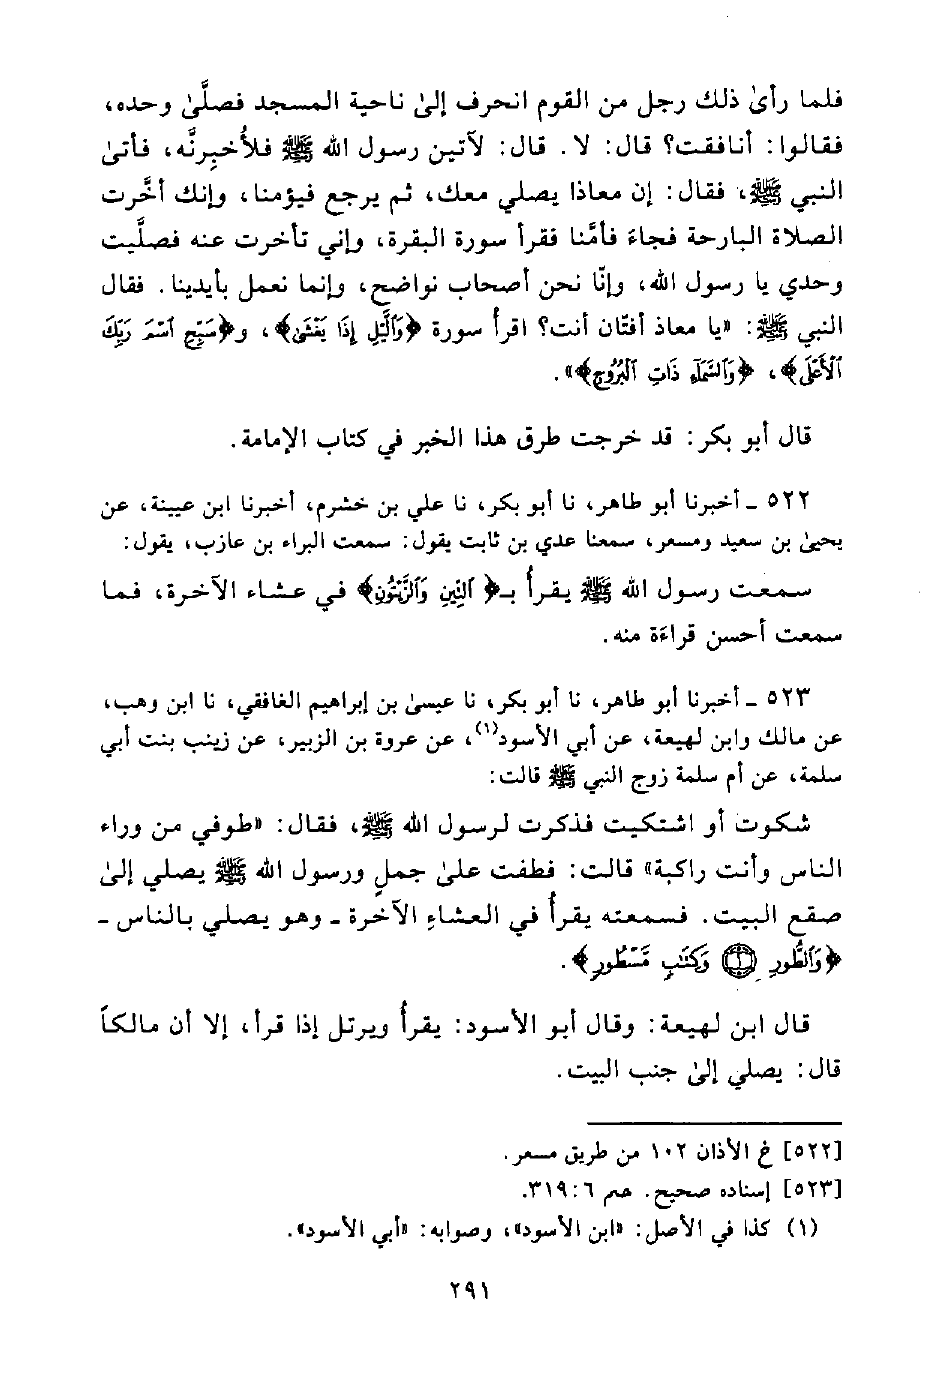 فلما رأىٰ ذلك رجل من القوم انحرف إلىٰ ناحية المسجد فصلَّىٰ وحده،
فقالوا: أنافقت؟ قال: لا. قال: لآتين رسول الله ﷺ فلأُخبِرنَّه، فأتىٰ
النبي ﷺ، فقال: إن معاذا يصلي معك، ثم يرجع فيؤمنا، وإنك أخَّرت
الصلاة البارحة فجاءَ فأمَّنا فقرأ سورة البقرة، وإني تأخرت عنه فصلَّيت
وحدي يا رسول الله، وإنّا نحن أصحاب نواضح، وإنما نعمل بأيدينا. فقال
النبي ﷺ: «يا معاذ أفتّان أنت؟ اقرأ سورة ﴿وَٱلَّيْلِ إِذَا يَغْشَىٰ﴾، و﴿سَبِّحِ ٱسْمَ رَبِّكَ
ٱلْأَعْلَى﴾، ﴿وَٱلسَّمَآءِ ذَاتِ ٱلْبُرُوجِ﴾».
قال أبو بكر: قد خرجت طرق هذا الخبر في كتاب الإمامة.
٥٢٢ ـ أخبرنا أبو طاهر، نا أبو بكر، نا علي بن خشرم، أخبرنا ابن عيينة، عن
يحيىٰ بن سعيد ومسعر، سمعنا عدي بن ثابت يقول: سمعت البراء بن عازب، يقول:
سمعت رسول الله ﷺ يقرأُ بـ﴿ ٱلتِّينِ وَٱلزَّيْتُونِ﴾ في عشاء الآخرة، فما
سمعت أحسن قراءَة منه.
٥٢٣ ـ أخبرنا أبو طاهر، نا أبو بكر، نا عيسىٰ بن إبراهيم الغافقي، نا ابن وهب،
عن مالك وابن لهيعة، عن أبي الأسود(١)، عن عروة بن الزبير، عن زينب بنت أبي
سلمة، عن أم سلمة زوج النبي ﷺ قالت:
شكوت أو اشتكيت فذكرت لرسول الله ﷺ، فقال: «طوفي من وراء
الناس وأنت راكبة» قالت: فطفت علىٰ جملٍ ورسول الله ﷺ يصلي إلىٰ
صقع البيت. فسمعته يقرأُ في العشاءِ الآخرة ـ وهو يصلي بالناس ـ
﴿وَٱلطُّورِ ۝١ وَكِتَٰبٍ مَّسْطُورٍ﴾.
قال ابن لهيعة: وقال أبو الأسود: يقرأُ ويرتل إذا قرأ، إلا أن مالكاً
قال: يصلي إلىٰ جنب البيت.
[٥٢٢] خ الأذان ١٠٢ من طريق مسعر.
[٥٢٣] إسناده صحيح. حم ٦: ٣١٩.
(١) كذا في الأصل: «ابن الأسود»، وصوابه: «أبي الأسود».
٢٩١